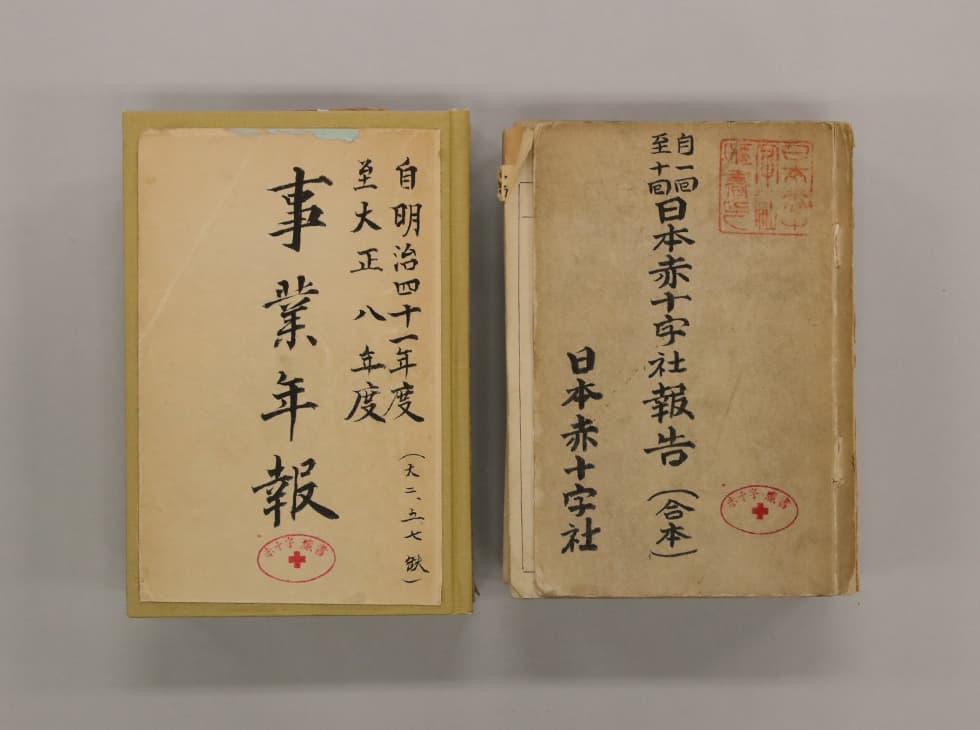 自明治四十一年度
至大正八年度
(大二、五、七缺)
事業年報
赤十字 藏書
自一回
至十回
日本赤十字社報告(合本)
日本赤十字社
赤十字 藏書